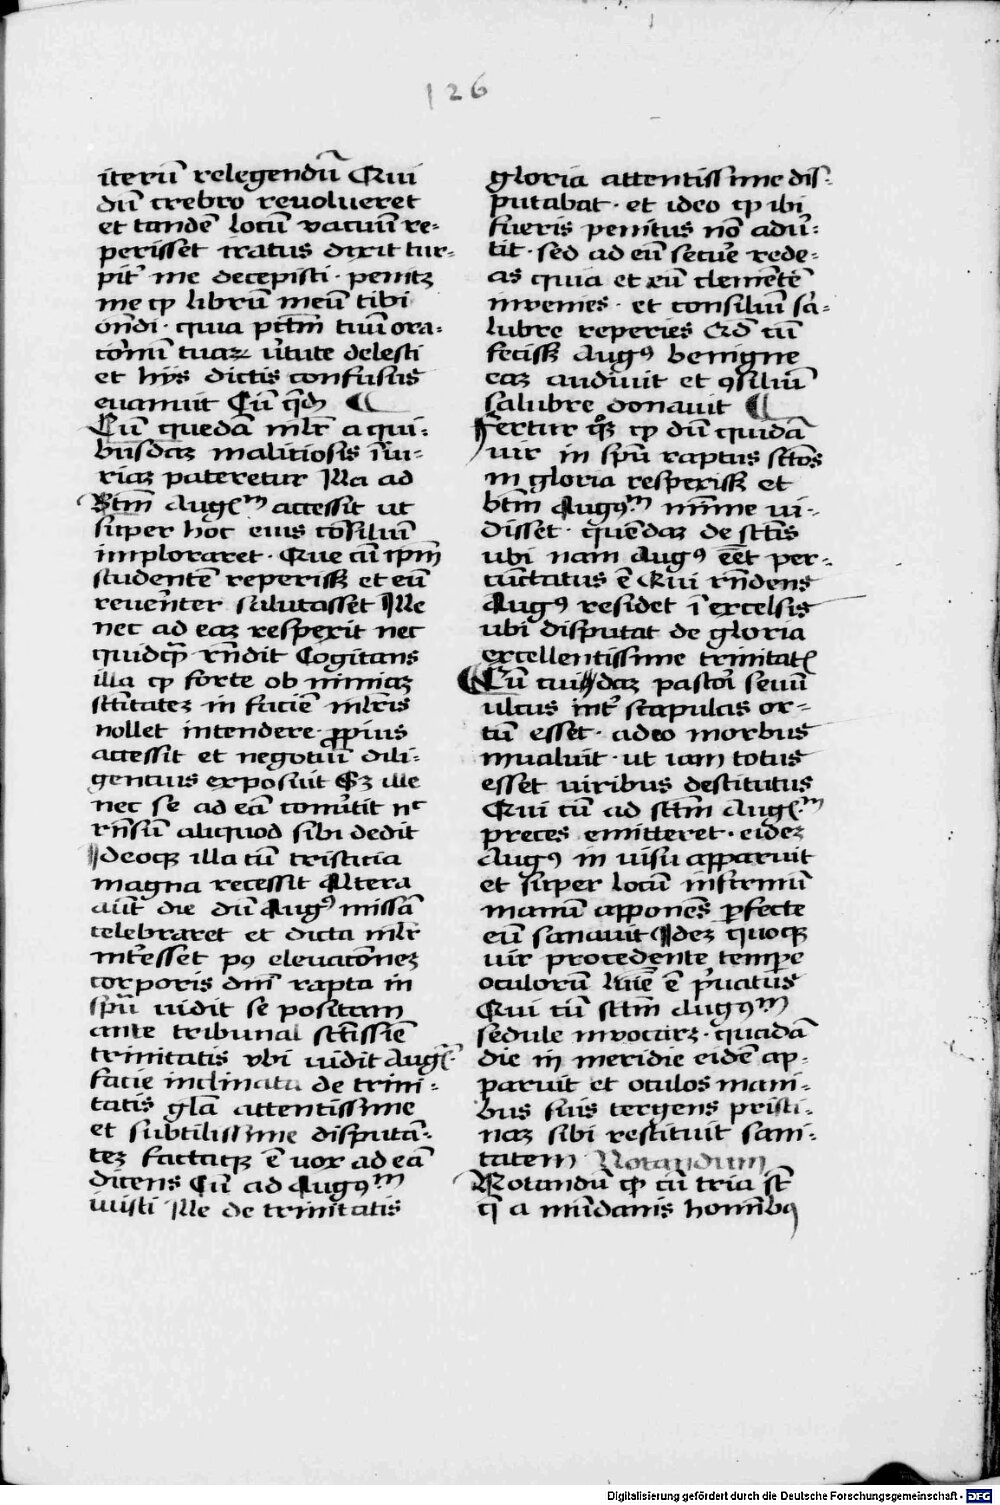 126
iterū relegendū Qui
dū crebro reuolueret
et tandē locū vacuū re-
perisset iratus dixit tur-
pit' me decepisti · penitꝫ
me ꝙ librū meū tibi
on̄di · quia pctm̄ tuū ora-
cōnū tuaꝝ v̓tute delesti
et hijs dictis confusus
euanuit Cū qd̄ꝫ
Cū quedā mlr̄ a qui-
busdaꝫ malitiosis ī iu-
riaꝫ pateretur Illa ad
Btm̄ Augꝯᵐ accessit ut
super hoc eius cōsiliū
imploraret · Que cū ip̄m
studentē reperisꝫ et eū
reuēnter salutasset Ille
nec ad eaꝫ respexit nec
quidqꝫ rn̄dit Cogitans
illa ꝙ forte ob nimiaꝫ
sctītateꝫ in faciē mlr̄is
nollet intendere ꝓpius
accessit et negotiū dili-
gentius exposuit Sꝫ ille
nec se ad eā cōmu̓tit nᶜ
rn̄sū aliquod sibi dedit
Ideoqꝫ illa cū tristicia
magna recessit Altera
aūt die dū Augꝯ missā
celebraret et dicta mlr̄
int̓esset pꝯ eleuatōneꝫ
corporis dn̄i rapta in
spū uidit se positam
ante tribunal sctīssīe
trinitatis vbi uidit Augꝯᵐ
facie inclinata de trini-
tatis glā attentissime
et subtilissime disputā-
teꝫ factaqꝫ ē uox ad eā
dicens Cū ad Augꝯᵐ
iuisti ille de trinitatis
gloria attentissime dis-
putabat · et ideo ꝙ ibi
fueris penitus nō adu̓-
tit · sed ad eū secu̓e rede-
as quia et eū clemētē
inuenies · et consiliū sa-
lubre reperies Qd̄ cū
fecisꝫ Augꝯ benigne
eaꝫ audiuit et ꝯsiliū
salubre donauit
Fertur qꝫ ꝙ dū quidā
uir in spū raptus sctōs
in gloria respexisꝫ et
btm̄ Augꝯᵐ mīme ui-
disset · quendaꝫ de sctīs
ubi nam Augꝯ eēt per-
cūctatus ē Qui rn̄dens
Augꝯ residet ī excelsis
ubi disputat de gloria
excellentissime trinitatꝭ
Cū cuidaꝫ pastori seuū
ulcus int̓ scapulas or-
tū esset · adeo morbus
inualuit · ut iam totus
esset uiribus destitutus
Qui cū ad sctm̄ Augꝯᵐ
preces emitteret · eideꝫ
Augꝯ in uisu apparuit
et super locū infirmū
manū apponēs ꝑfecte
eū sanauit Ideꝫ quoqꝫ
uir procedente temꝑe
oculorū luīe ē p̓uatus
Qui cū sctm̄ Augꝯᵐ
sedule inuocarꝫ · quadā
die in meridie eidē ap-
paruit et oculos mani-
bus suis tergens pristi-
naꝫ sibi restituit sani-
tatem Notandum
Notandū ꝙ cū tria st̄
q̄ a mūdanis hominibꝯ
Digitalisierung gefördert durch die Deutsche Forschungsgemeinschaft - DFG